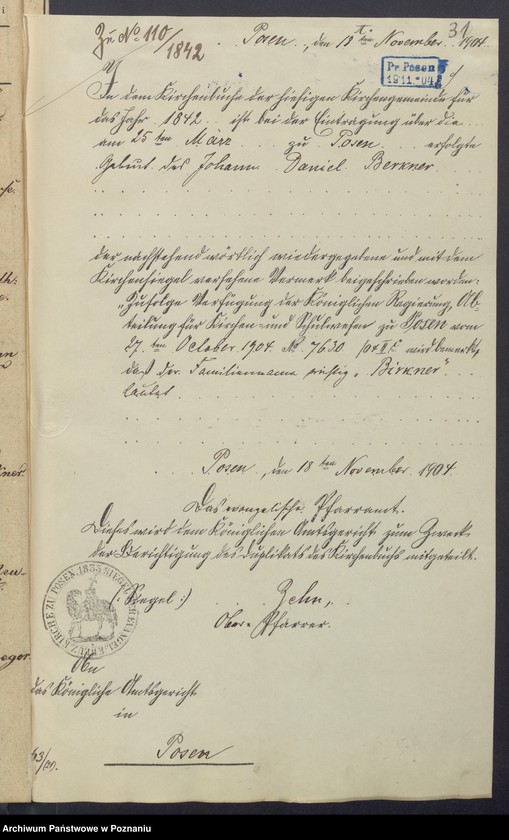 Zu No 110/1842
31
Posen, den 18ten November 1904.
Pr. Posen
19.11.04
In dem Kirchenbuche der hiesigen Kirchengemeinde für
das Jahr 1842 ist bei der Eintragung über die
am 25ten März zu Posen erfolgte
Geburt des Johann Daniel Berkner
der nachstehend wörtlich wiedergegebene und mit dem
Kirchensiegel versehene Vermerk beigeschrieben worden:
"Zufolge Verfügung der Königlichen Regierung, Ab-
teilung für Kirchen- und Schulwesen zu Posen vom
27ten October 1904 No 7630/04 II wird bemerkt,
daß der Familienname richtig "Birkner"
lautet.
Posen, den 18ten November 1904.
Das evangelische Pfarramt.
Dieses wird dem Königlichen Amtsgericht zum Zweck
der Berichtigung des Duplikats des Kirchenbuchs mitgeteilt.
(: Siegel :)
Zehn,
Ober-Pfarrer.
KIRCHE ZU POSEN 1835 SIEGEL
An
das Königliche Amtsgericht
in
Posen
Archiwum Państwowe w Poznaniu